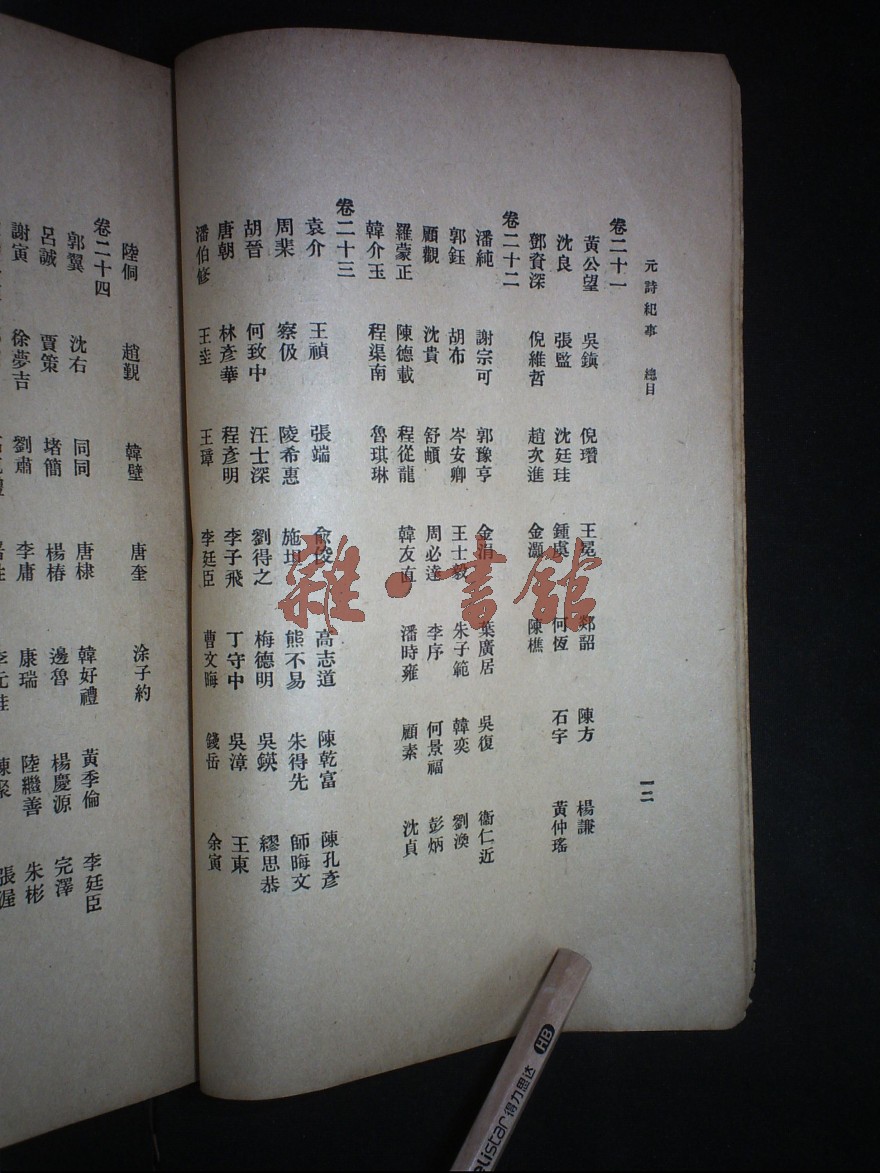 元詩紀事　總目
一二
卷二十一
黃公望　吳鎮　倪瓚　王冕　郯韶　陳方　楊謙
沈良　張監　沈廷珪　鍾虞　何恆　石宇　黃仲瑤
鄧資深　倪維哲　趙次進　金灝　陳樵
卷二十二
潘純　謝宗可　郭豫亨　金涓　葉廣居　吳復　衞仁近
郭鈺　胡布　岑安卿　王士毅　朱子範　韓奕　劉渙
顧觀　沈貴　舒頔　周必達　李序　何景福　彭炳
羅蒙正　陳德載　程從龍　韓友直　潘時雍　顧素　沈貞
韓介玉　程渠南　魯琪琳
卷二十三
袁介　王禎　張端　俞俊　高志道　陳乾富　陳孔彥
周棐　察伋　陵希惠　施坦　熊不易　朱得先　師晦文
胡晉　何致中　汪士深　劉得之　梅德明　吳鍈　繆思恭
唐朝　林彥華　程彥明　李子飛　丁守中　吳漳　王東
潘伯修　王圭　王璋　李廷臣　曹文晦　錢岳　余寅
陸侗　趙覲　韓璧　唐奎　涂子約
卷二十四
郭翼　沈右　同同　唐棣　韓好禮　黃季倫　李廷臣
呂誠　賈策　堵簡　楊椿　邊魯　楊慶源　完澤
謝寅　徐夢吉　劉肅　李庸　康瑞　陸繼善　朱彬
張渥
雜·書館
HB 得力思达